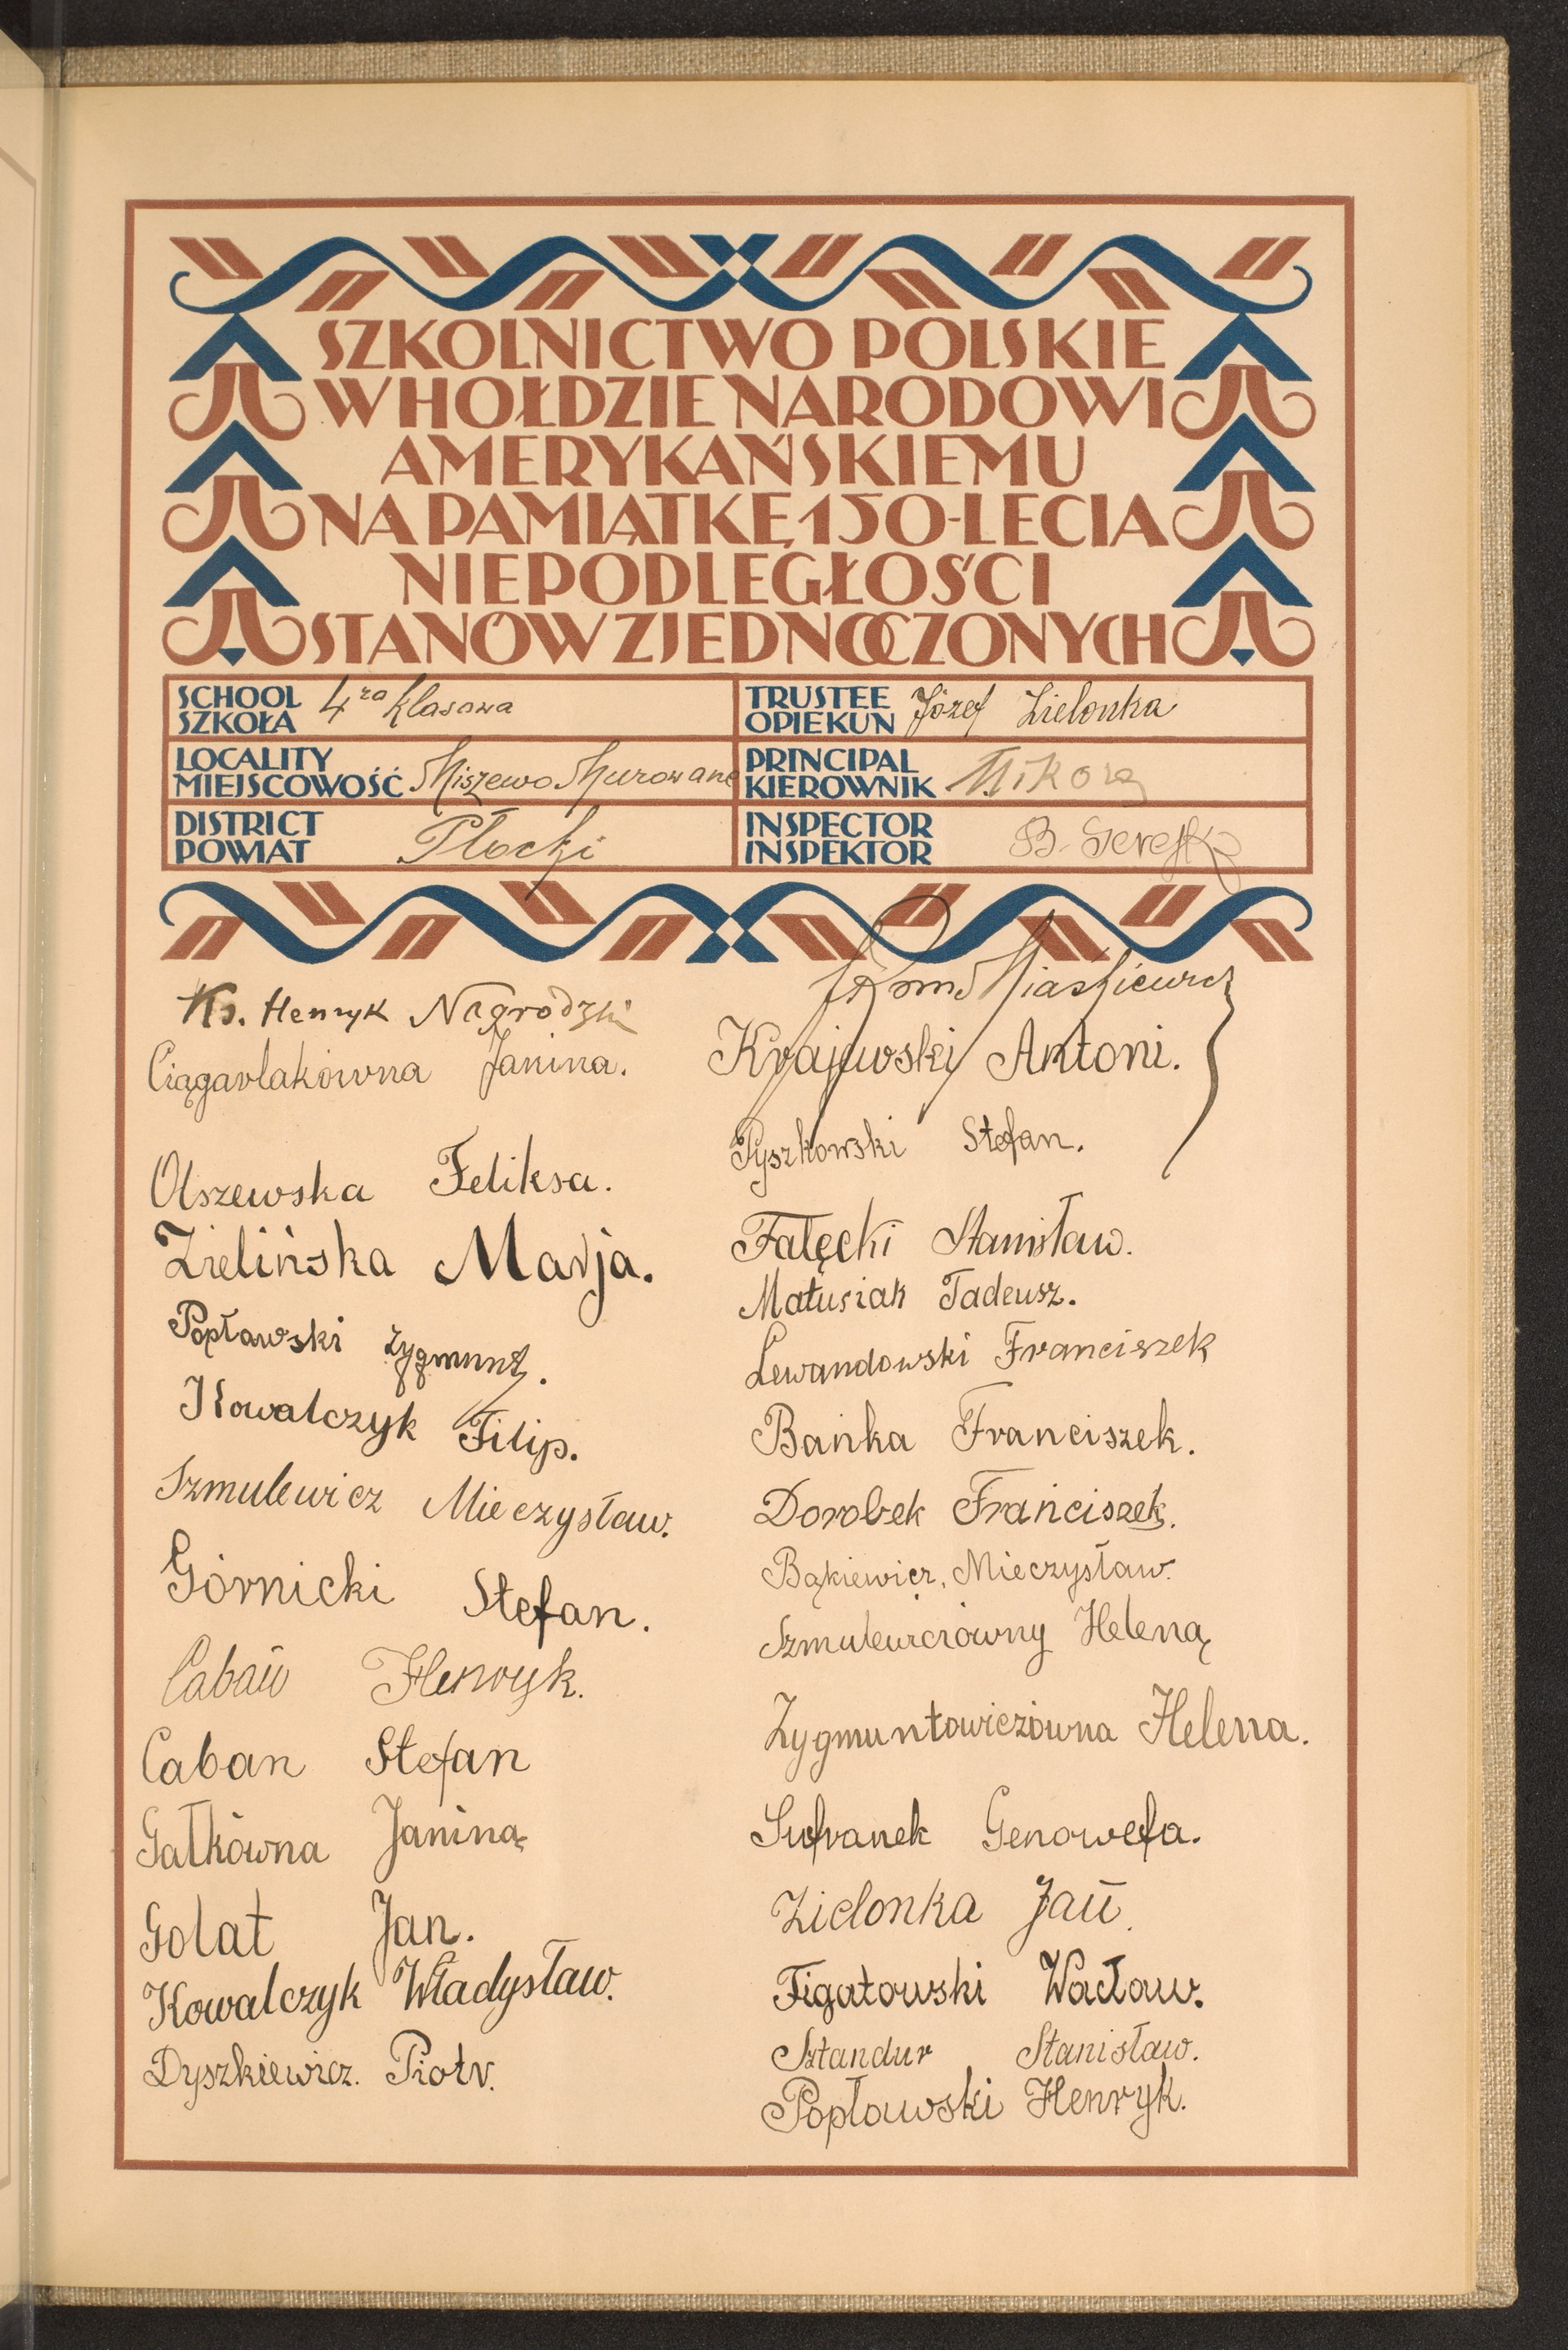 SZKOLNICTWO POLSKIE
W HOŁDZIE NARODOWI
AMERYKAŃSKIEMU
NA PAMIĄTKĘ 150-LECIA
NIEPODLEGŁOŚCI
STANÓW ZJEDNOCZONYCH
SCHOOL
SZKOŁA
4ra klasowa
TRUSTEE
OPIEKUN
Józef Zielonka
LOCALITY
MIEJSCOWOŚĆ
Miszewo Murowane
PRINCIPAL
KIEROWNIK
DISTRICT
POWIAT
Płocki
INSPECTOR
INSPEKTOR
B.
Ks. Henryk Nagrodzki
Janina.
Olszewska Feliksa.
Zielińska Marja.
Popławski Zygmunt.
Kowalczyk Filip.
Szmulewicz Mieczysław.
Górnicki Stefan.
Caban Henryk.
Caban Stefan
Gałkówna Janina
Golat Jan.
Kowalczyk Władysław.
Dyszkiewicz. Piotr.
Miaskiewicz
Krajewski Antoni.
Pyszkowski Stefan.
Falęcki Stanisław.
Matusiak Tadeusz.
Lewandowski Franciszek
Bańka Franciszek.
Dorobek Franciszek.
Bąkiewicz, Mieczysław.
Szmulewiczówny Heleną
Zygmuntowiczówna Helena.
Sufranek Genowefa.
Zielonka Jan.
Figatowski Wacław.
Sztandur Stanisław.
Popławski Henryk.